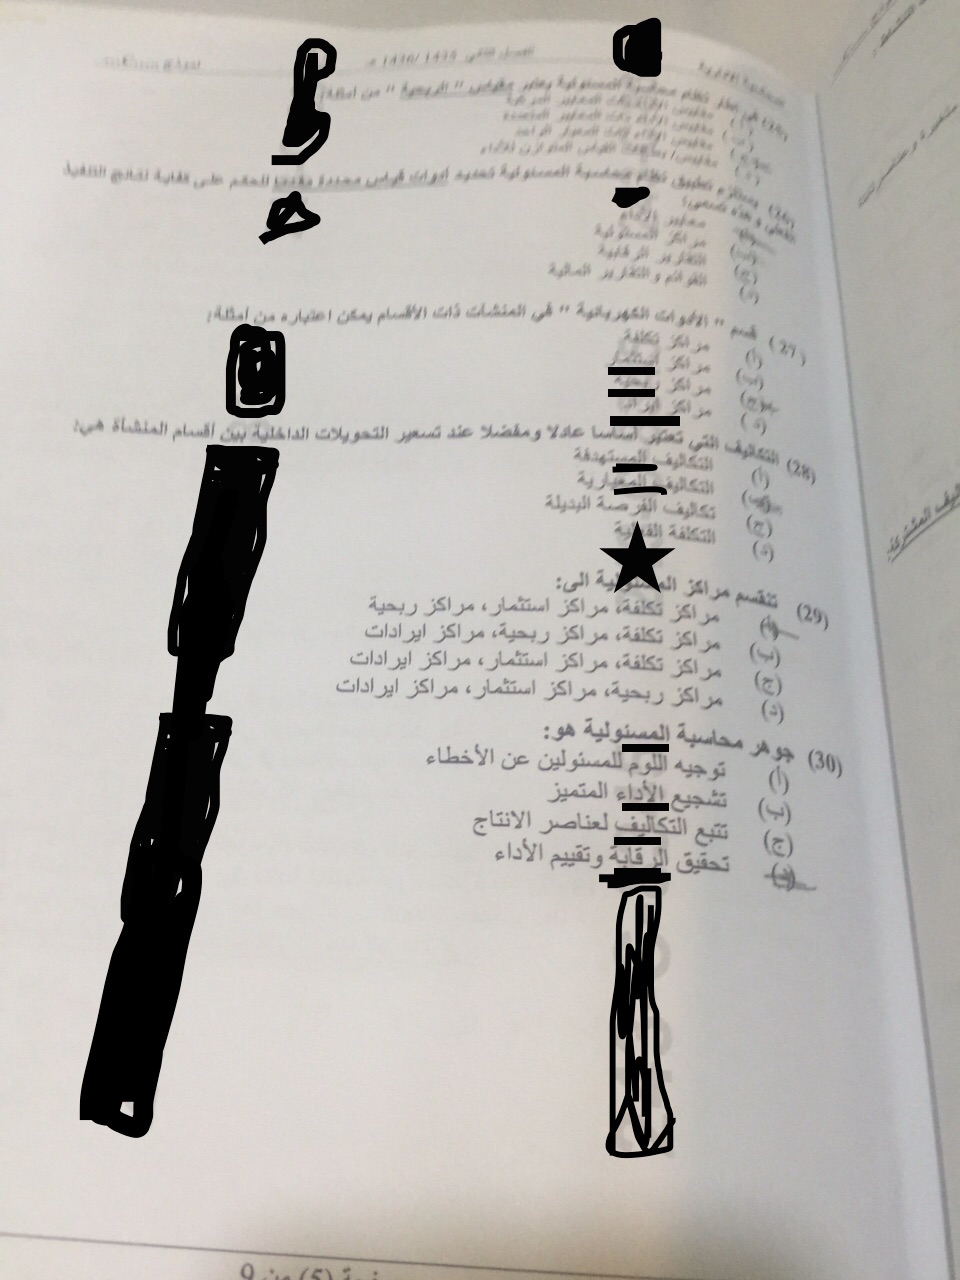 الفصل الثاني 1435 /1436 هـ
(25) في إطار نظام محاسبة المسئولية يعتبر مقياس " الربحية " من أمثلة:
(أ) مقاييس الأداء ذات المعايير
(ب) مقاييس الأداء ذات المعايير المتعددة
(ج) مقاييس الأداء ذات المعيار الواحد
(د) مقاييس القياس المتوازن للأداء
(26) يستلزم تطبيق نظام محاسبة المسئولية تحديد أدوات قياس محددة مقدما للحكم على كفاية نتائج التنفيذ
الفعلي و هذه تسمى:
معايير الأداء
(ب) مراكز المسئولية
(ج) التقارير الرقابية
(د) القوائم و التقارير المالية
(27) قسم " الأدوات الكهربائية " في المنشآت ذات الأقسام يمكن اعتباره من أمثلة:
(أ) مراكز تكلفة
(ب) مراكز استثمار
(ج) مراكز ربحية
(د) مراكز
(28) التكاليف التي تعتبر أساسا عادلا ومفضلا عند تسعير التحويلات الداخلية بين أقسام المنشأة هي:
(أ) التكاليف المستهدفة
(ب) التكاليف المعيارية
(ج) تكاليف الفرصة البديلة
(د) التكلفة
(29) تنقسم مراكز المسئولية الى:
(أ) مراكز تكلفة، مراكز استثمار، مراكز ربحية
(ب) مراكز تكلفة، مراكز ربحية، مراكز ايرادات
(ج) مراكز تكلفة، مراكز استثمار، مراكز ايرادات
(د) مراكز ربحية، مراكز استثمار، مراكز ايرادات
(30) جوهر محاسبة المسئولية هو:
(أ) توجيه اللوم للمسئولين عن الأخطاء
(ب) تشجيع الأداء المتميز
(ج) تتبع التكاليف لعناصر الانتاج
(د) تحقيق الرقابة وتقييم الأداء
صفحة (5) من 9